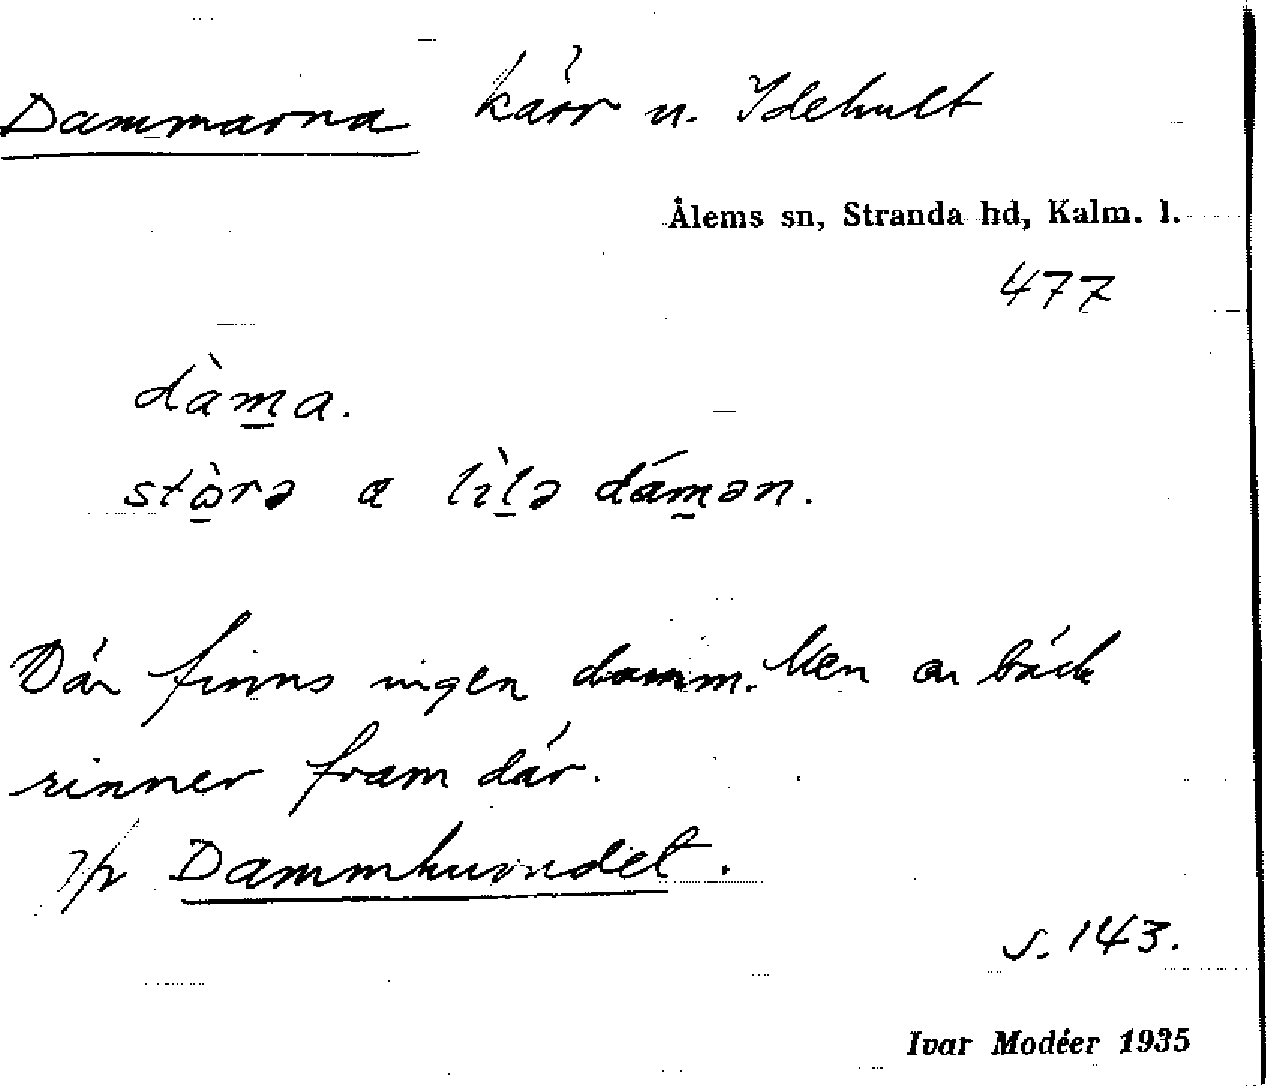 Dammarna kärr u. Idehult
Ålems sn, Stranda hd, Kalm. l.
477
dàm̲a.
stὼ̲rə a lìl̲ə dám̲ən.
Där finns ingen damm. Men en bäck
rinner fram där.
Dammhuvudet.
s. 143.
Ivar Modéer 1935